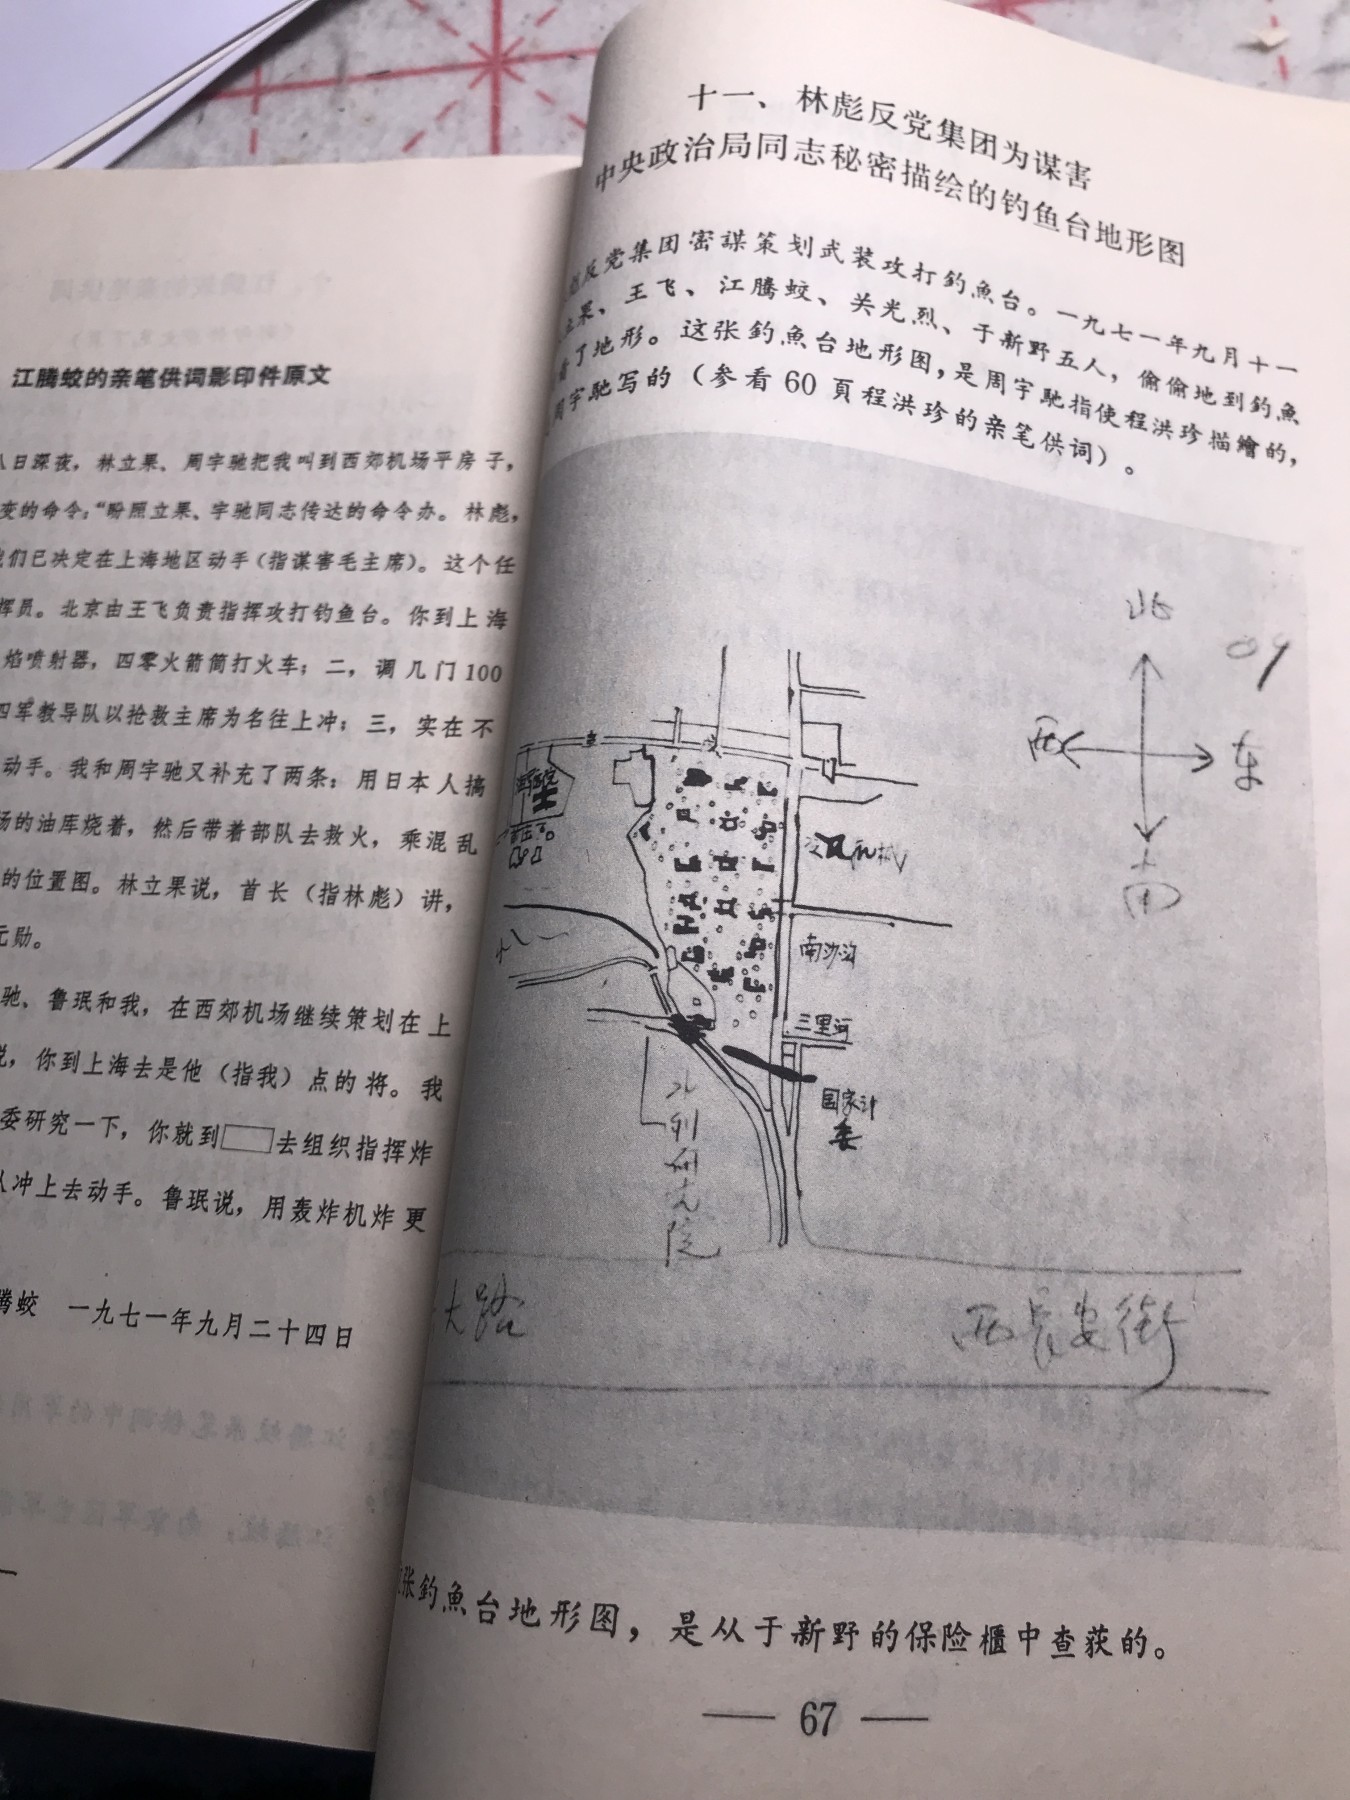 江腾蛟的亲笔供词影印件原文
八日深夜，林立果、周宇驰把我叫到西郊机场平房子，
变的命令：“盼照立果、宇驰同志传达的命令办。林彪，
我们已决定在上海地区动手（指谋害毛主席）。这个任
挥员。北京由王飞负责指挥攻打钓鱼台。你到上海
焰喷射器，四零火箭筒打火车；二，调几门100
四军教导队以抢救主席为名往上冲；三，实在不
动手。我和周宇驰又补充了两条：用日本人搞
场的油库烧着，然后带着部队去救火，乘混乱
的位置图。林立果说，首长（指林彪）讲，
元勋。
驰、鲁珉和我，在西郊机场继续策划在上
说，你到上海去是他（指我）点的将。我
委研究一下，你就到 去组织指挥炸
队冲上去动手。鲁珉说，用轰炸机炸更
腾蛟 一九七一年九月二十四日
十一、林彪反党集团为谋害
中央政治局同志秘密描绘的钓鱼台地形图
彪反党集团密謀策划武装攻打釣魚台。一九七一年九月十一
立果、王飞、江腾蛟、关光烈、于新野五人，偷偷地到釣魚
看了地形。这张釣魚台地形图，是周宇馳指使程洪珍描繪的，
周宇馳写的（参看60頁程洪珍的亲笔供词）。
北
西
东
南
南沙沟
三里河
国家计
委
研究院
大路
西长安街
这张釣魚台地形图，是从于新野的保险櫃中查获的。
— 67 —